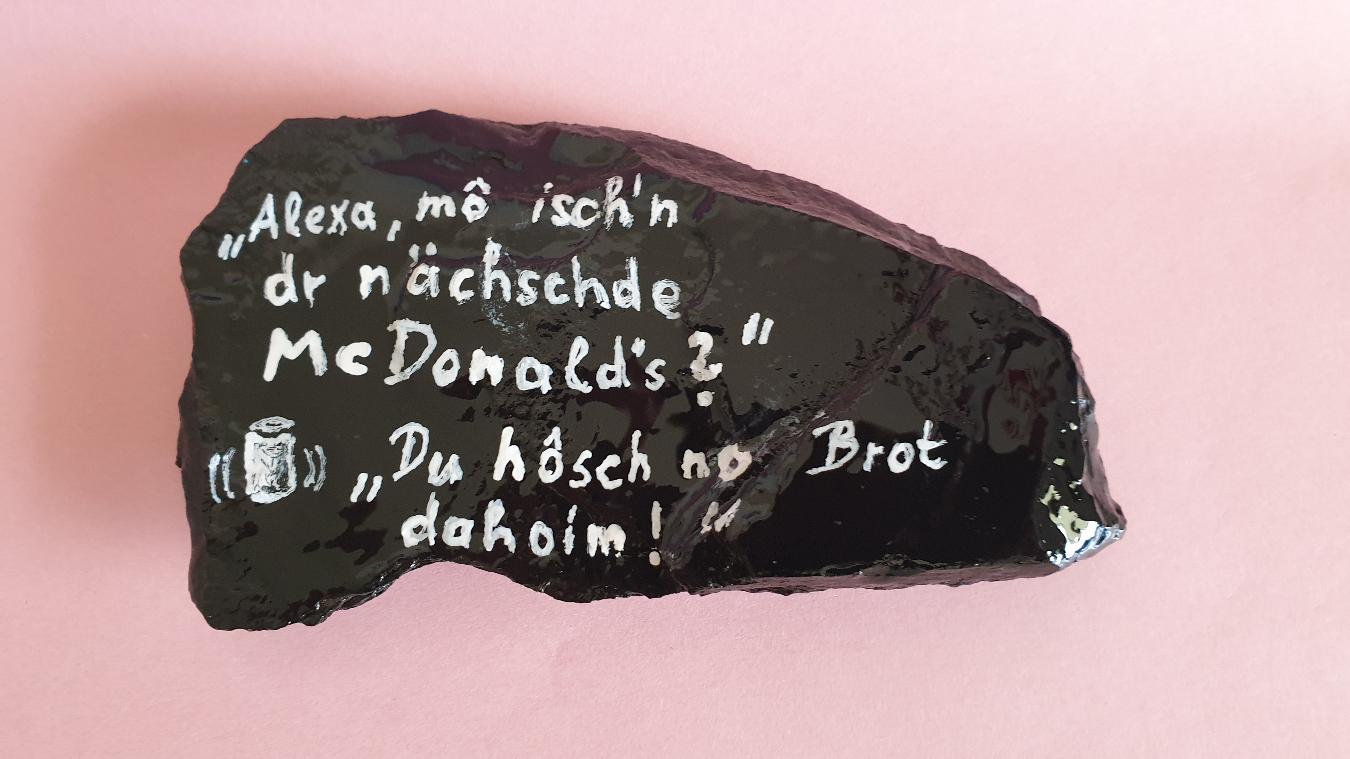 „Alexa, mô isch'n
dr nächschde
McDonald's?"
„Du hôsch no Brot
dahoim!"